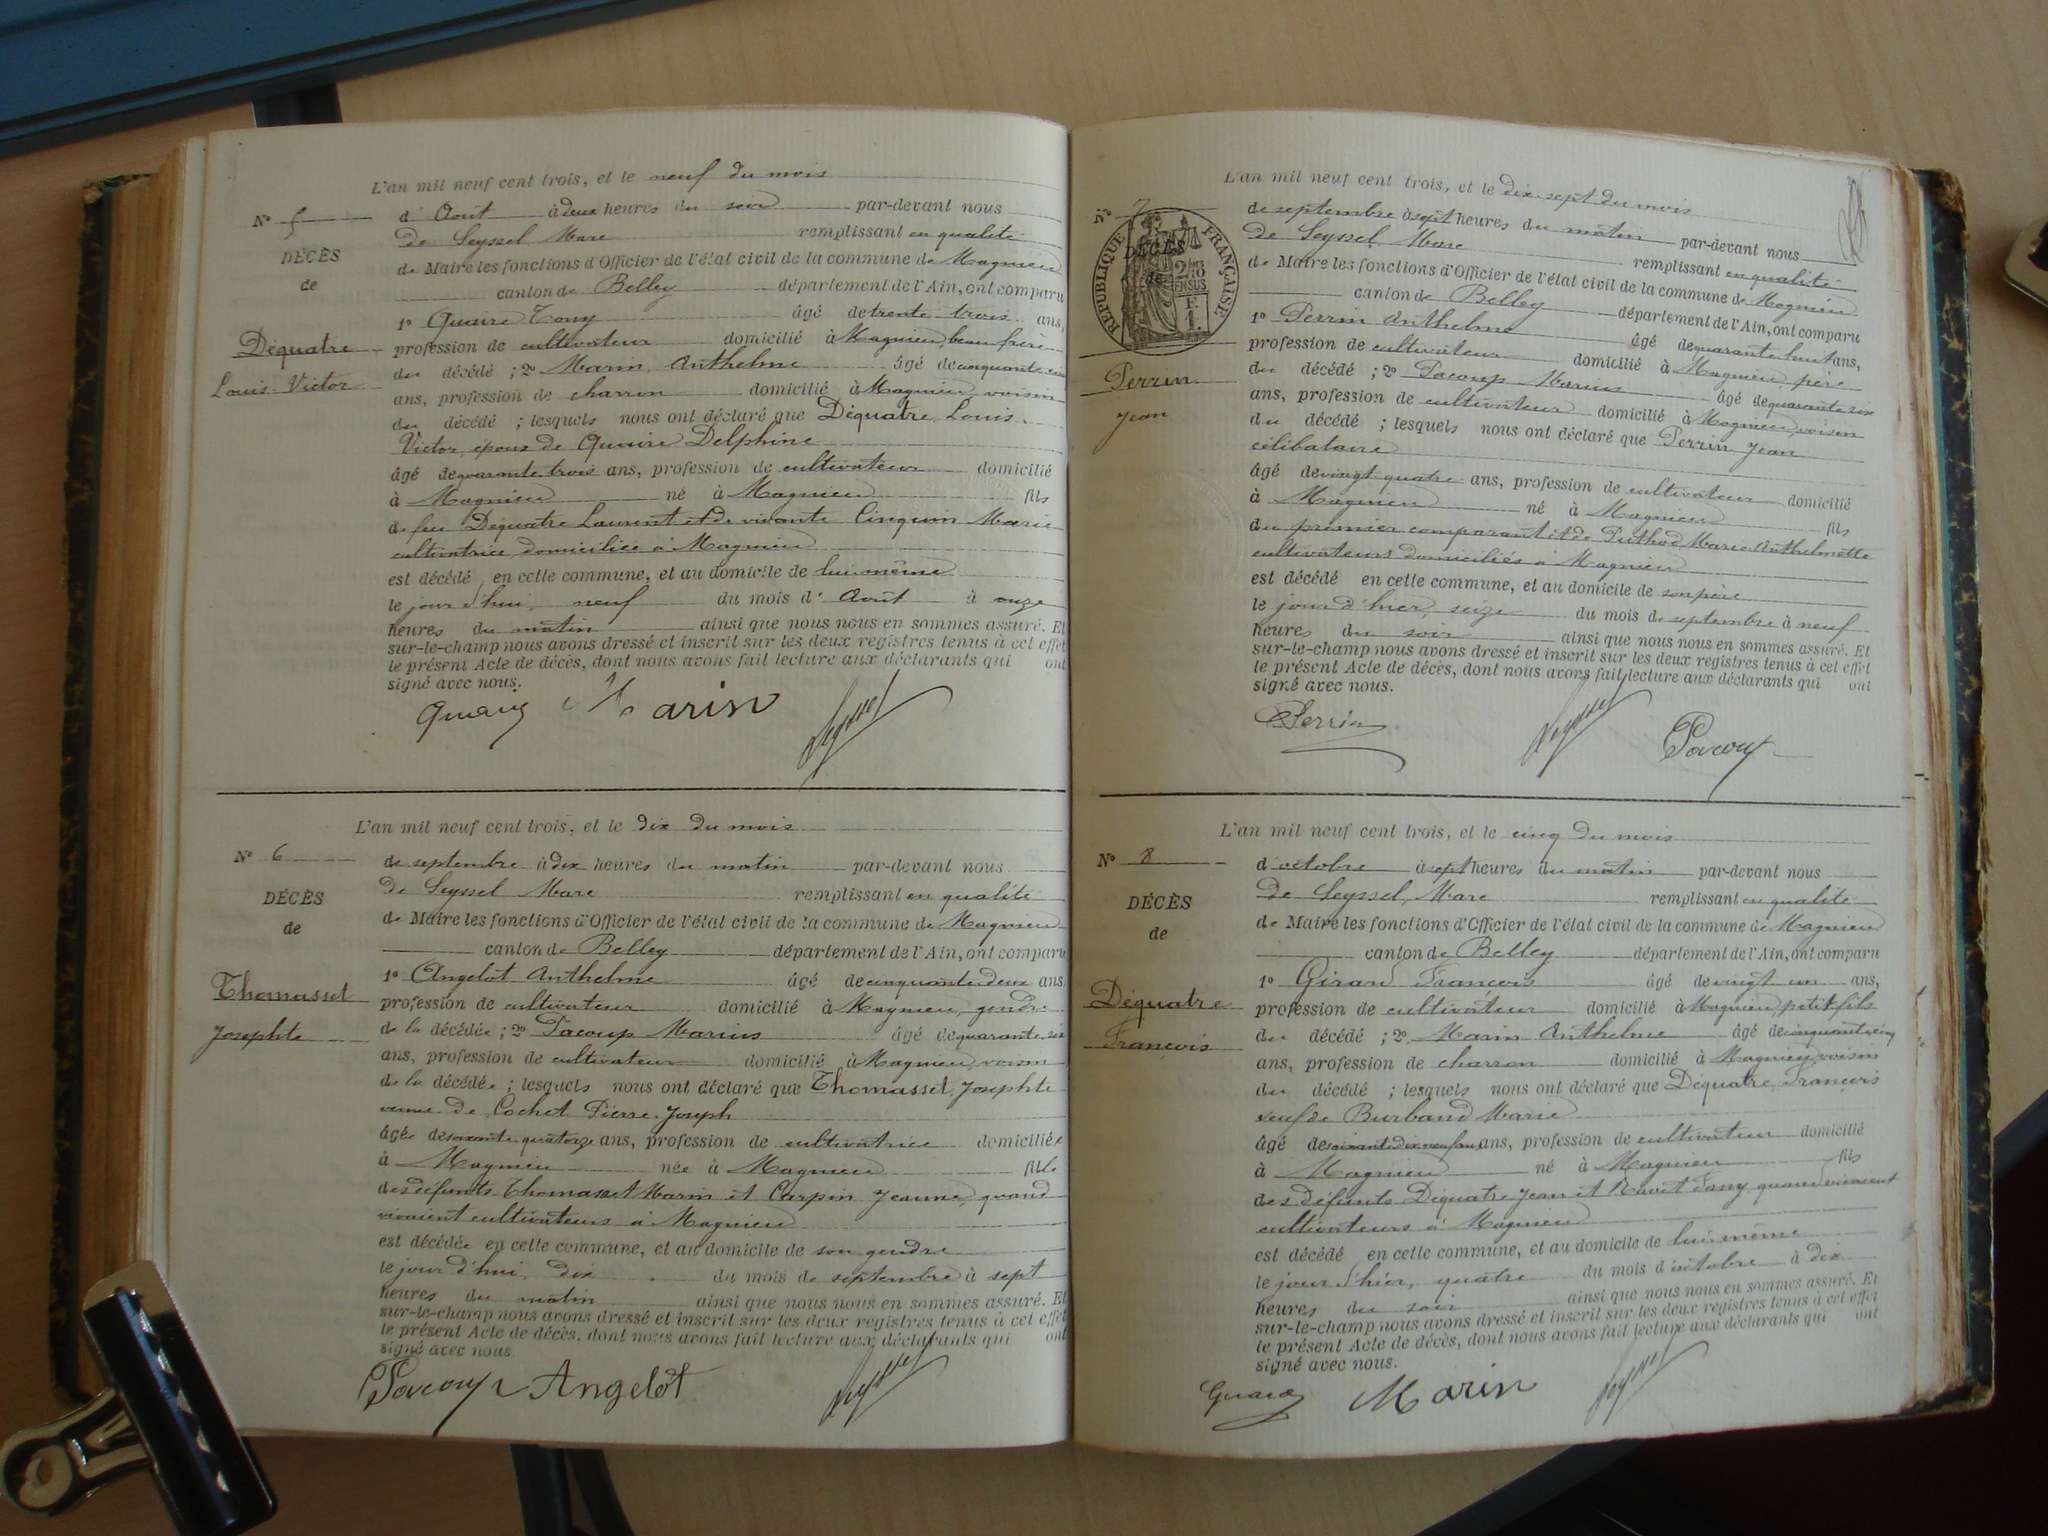 L'an mil neuf cent trois, et le neuf du mois
N° 5
d'Août à deux heures du soir par-devant nous
de Seyssel Marc remplissant en qualité
DÉCÈS
de Maire les fonctions d'Officier de l'état civil de la commune de Magnieu
de
canton de Belley département de l'Ain, ont comparu
1° Quaire Tony âgé de trente trois ans,
Déquatre
profession de cultivateur domicilié à Magnieu, beau frère
du décédé ; 2° Marin Anthelme âgé de cinquante
Louis Victor
ans, profession de charron domicilié à Magnieu, voisin
du décédé ; lesquels nous ont déclaré que Déquatre Louis
Victor, époux de Quaire Delphine
âgé de quarante trois ans, profession de cultivateur domicilié
à Magnieu né à Magnieu fils
de feu Déquatre Laurent et de vivante Cinquin Marie
cultivatrice domiciliée à Magnieu
est décédé en cette commune, et au domicile de lui-même
le jour d'hui, neuf du mois d'Août à onze
heures du matin ainsi que nous nous en sommes assuré. Et
sur-le-champ nous avons dressé et inscrit sur les deux registres tenus à cet effet
le présent Acte de décès, dont nous avons fait lecture aux déclarants qui ont
signé avec nous.
Quaire Marin Seyssel
L'an mil neuf cent trois, et le dix du mois
N° 6
de septembre à dix heures du matin par-devant nous
de Seyssel Marc remplissant en qualité
DÉCÈS
de Maire les fonctions d'Officier de l'état civil de la commune de Magnieu
de
canton de Belley département de l'Ain, ont comparu
1° Angelot Anthelme âgé de cinquante deux ans
Thomasset
profession de cultivateur domicilié à Magnieu, gendre
Josephte
de la décédée ; 2° Pacoup Marius âgé de quarante six
ans, profession de cultivateur domicilié à Magnieu, voisin
de la décédée ; lesquels nous ont déclaré que Thomasset, Josephte
veuve de Cochet Pierre Joseph
âgée de soixante quatorze ans, profession de cultivatrice domiciliée
à Magnieu née à Magnieu fille
des défunts Thomasset Marin et Carpin Jeanne, quand
vivaient cultivateurs à Magnieu
est décédée en cette commune, et au domicile de son gendre
le jour d'hui, dix du mois de septembre à sept
heures du matin ainsi que nous nous en sommes assuré. Et
sur-le-champ nous avons dressé et inscrit sur les deux registres tenus à cet effet
le présent Acte de décès, dont nous avons fait lecture aux déclarants qui ont
signé avec nous.
Pacoup Angelot Seyssel
L'an mil neuf cent trois, et le dix-sept du mois
N° 7
de septembre à sept heures du matin par-devant nous
de Seyssel Marc remplissant en qualité
RÉPUBLIQUE FRANÇAISE
DÉCÈS
de
de Maire les fonctions d'Officier de l'état civil de la commune de Magnieu
canton de Belley département de l'Ain, ont comparu
1° Perrin Anthelme âgé de quarante huit ans,
profession de cultivateur domicilié à Magnieu, père
Perrin
du décédé ; 2° Pacoup Marius âgé de quarante six
Jean
ans, profession de cultivateur domicilié à Magnieu, voisin
du décédé ; lesquels nous ont déclaré que Perrin Jean
célibataire
âgé de vingt quatre ans, profession de cultivateur domicilié
à Magnieu né à Magnieu fils
du premier comparant et de Puthod Marie Anthelmette
cultivateurs domiciliés à Magnieu
est décédé en cette commune, et au domicile de son père
le jour d'hier, seize du mois de septembre à neuf
heures du soir ainsi que nous nous en sommes assuré. Et
sur-le-champ nous avons dressé et inscrit sur les deux registres tenus à cet effet
le présent Acte de décès, dont nous avons fait lecture aux déclarants qui ont
signé avec nous.
Perrin Seyssel Pacoup
L'an mil neuf cent trois, et le cinq du mois
N° 8
d'octobre à sept heures du matin par-devant nous
de Seyssel, Marc remplissant en qualité
DÉCÈS
de Maire les fonctions d'Officier de l'état civil de la commune de Magnieu
de
canton de Belley département de l'Ain, ont comparu
1° Girard François âgé de vingt un ans,
Déquatre
profession de cultivateur domicilié à Magnieu, petit-fils
François
du décédé ; 2° Marin Anthelme âgé de cinquante cinq
ans, profession de charron domicilié à Magnieu, voisin
du décédé ; lesquels nous ont déclaré que Déquatre, François
veuf de Burband Marie
âgé de soixante dix neuf ans, profession de cultivateur domicilié
à Magnieu né à Magnieu fils
des défunts Déquatre Jean et Ravet Fany quand vivaient
cultivateurs à Magnieu
est décédé en cette commune, et au domicile de lui-même
le jour d'hier, quatre du mois d'octobre à dix
heures du soir ainsi que nous nous en sommes assuré. Et
sur-le-champ nous avons dressé et inscrit sur les deux registres tenus à cet effet
le présent Acte de décès, dont nous avons fait lecture aux déclarants qui ont
signé avec nous.
Girard Marin Seyssel